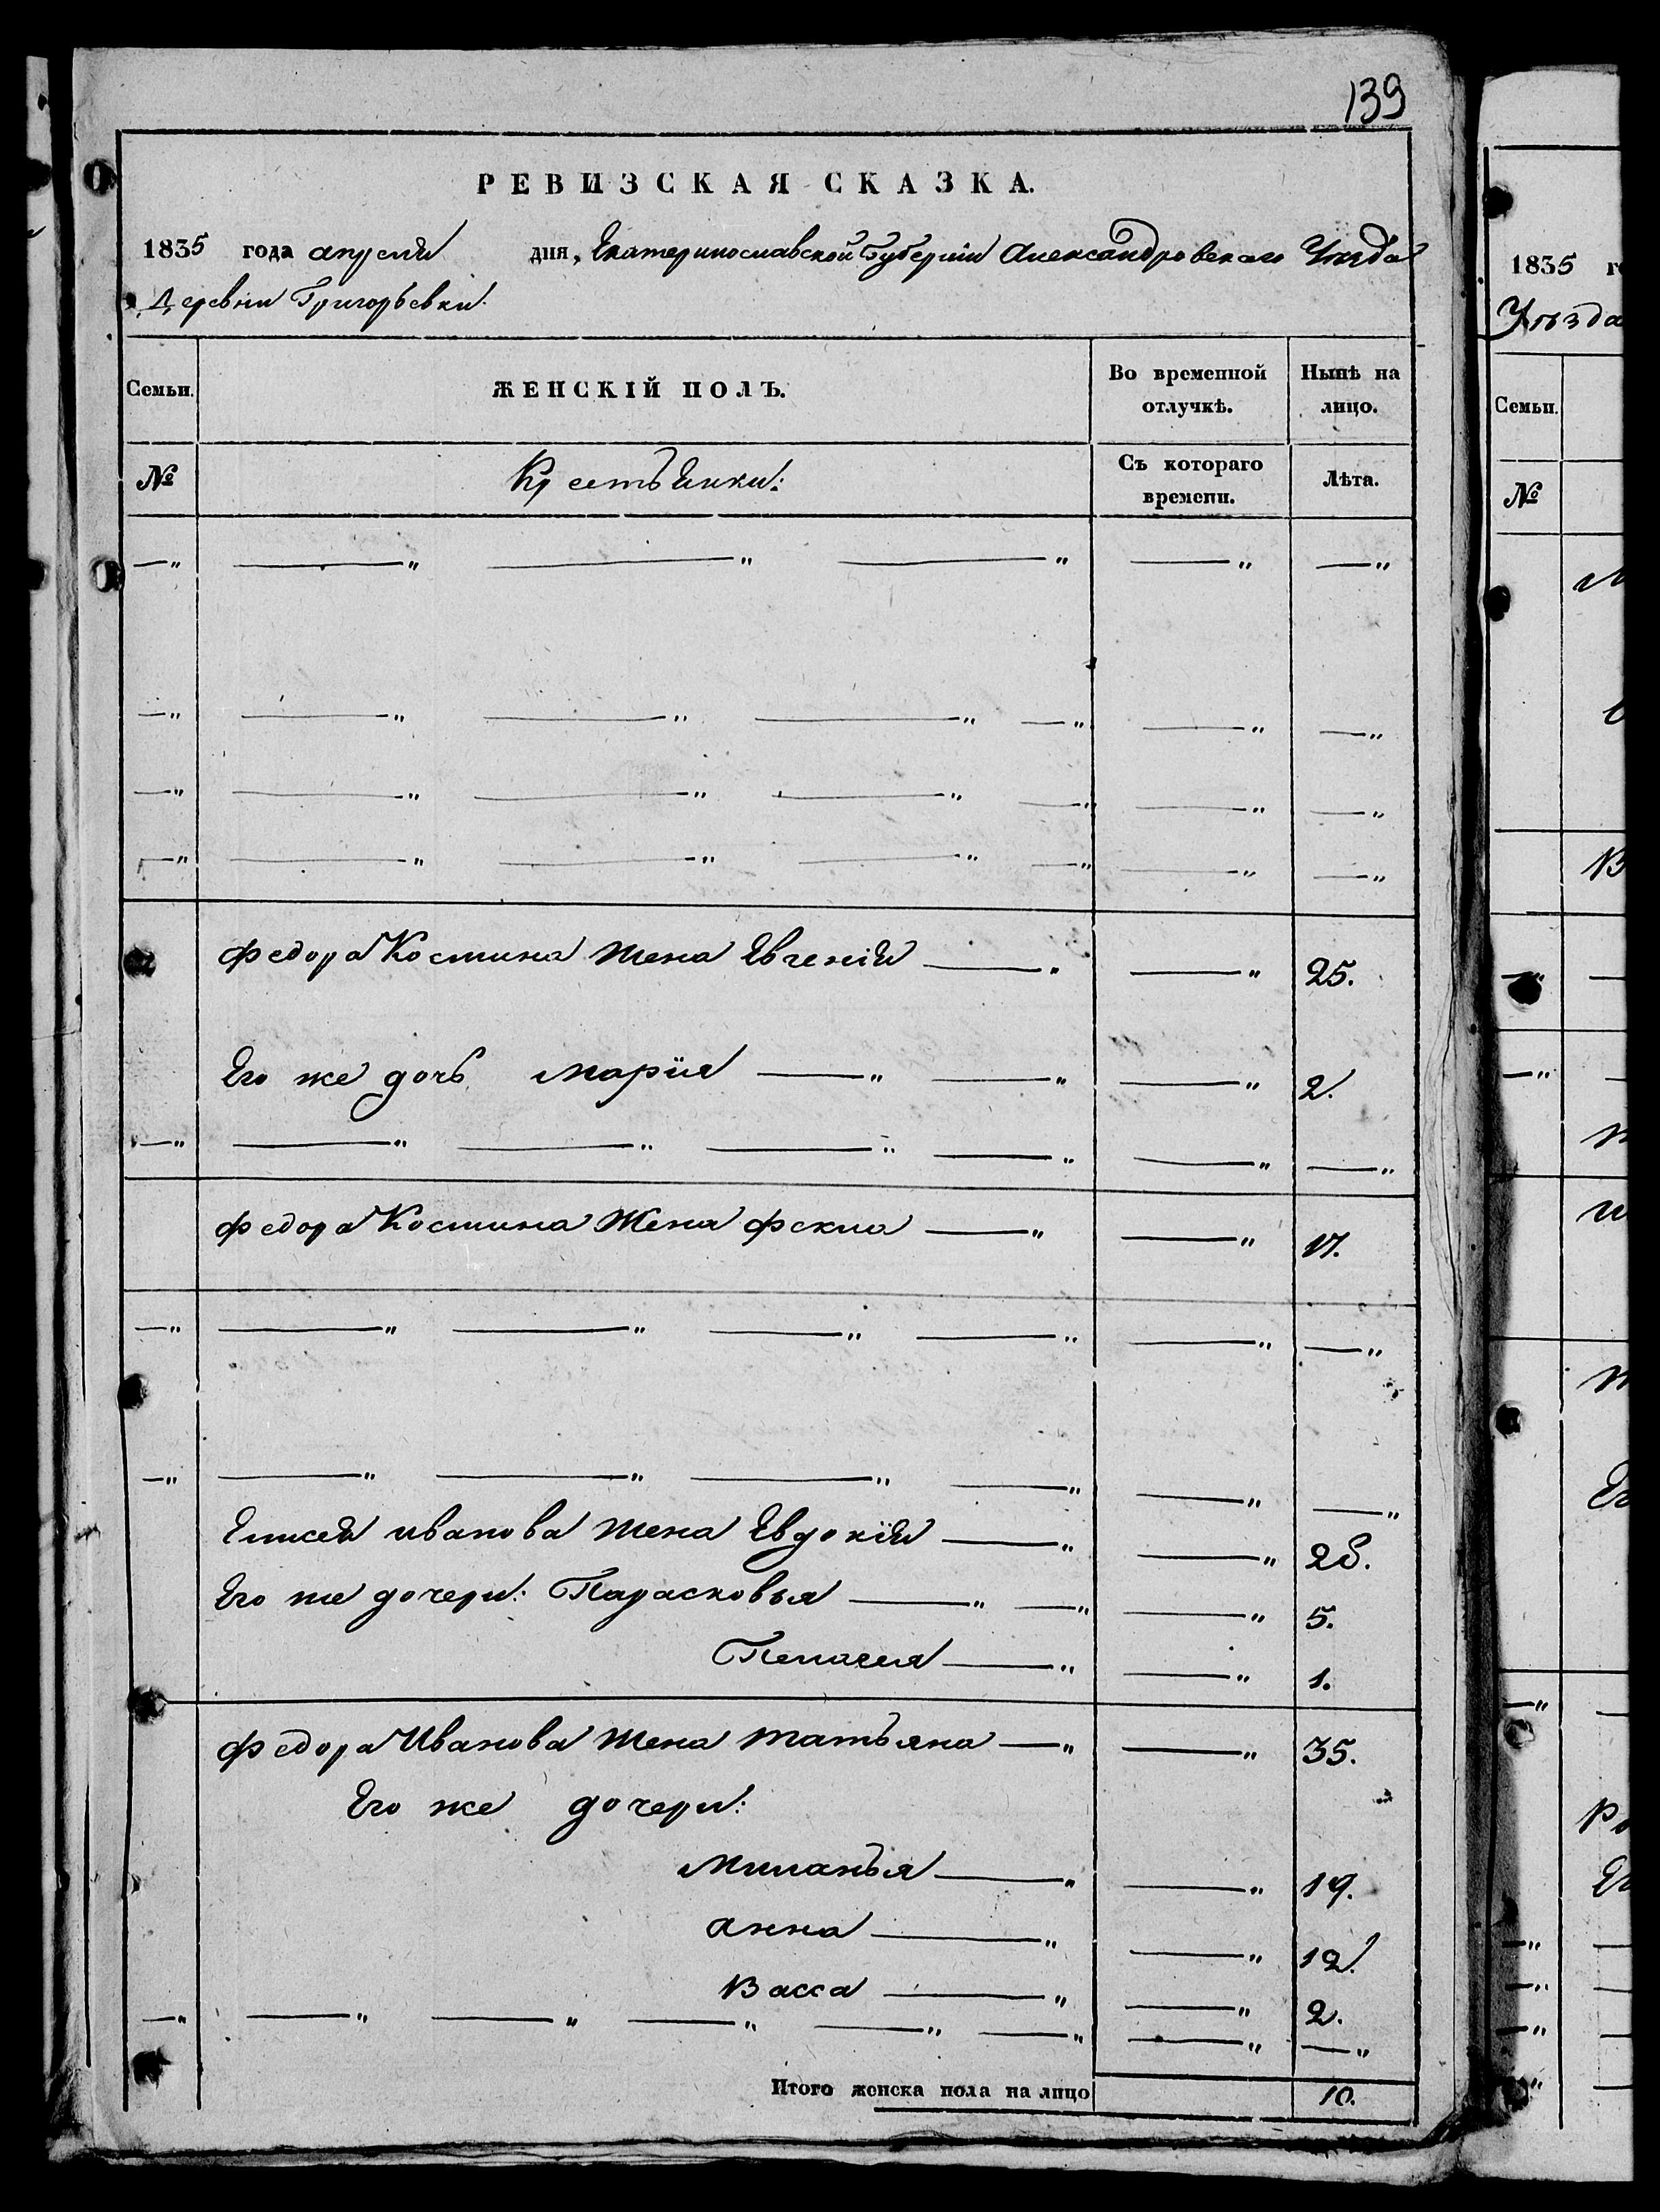 139
РЕВИЗСКАЯ СКАЗКА.
1835 года апреля дня, Екатеринославской Губерніи Александровскаго Уезда
Деревни Григорьевки.
Семьи.
ЖЕНСКІЙ ПОЛЪ.
Во временной отлучкѣ.
Нынѣ на лицо.
№
Крестьянки:
Съ котораго времени.
Лѣта.
—„ —„ —„ —„ —„ —„
—„ —„ —„ —„ —„ —„ —„
—„ —„ —„ —„ —„ —„ —„
—„ —„ —„ —„ —„ —„ —„
Федора Костина жена Евгенія —„ —„ 25.
Его же дочь Марїя —„ —„ —„ 2.
—„ —„ —„ —„ —„ —„ —„
Федора Костина Жена Фекла —„ —„ 17.
—„ —„ —„ —„ —„ —„ —„
—„ —„ —„ —„ —„ —„ —„
Елисея иванова жена Евдокїя —„ —„
Его же дочери: Парасковья —„ —„ —„ 5.
Пелагея —„ —„ 1.
Федора Иванова жена татьяна —„ —„ 35.
Его же дочери:
Миланья —„ —„ 19.
анна —„ —„ 12.
Васса —„ —„ 2.
—„ —„ —„ —„ —„ —„ —„ —„
Итого женска пола на лицо 10.
1835
Уѣзда
Семьи.
№